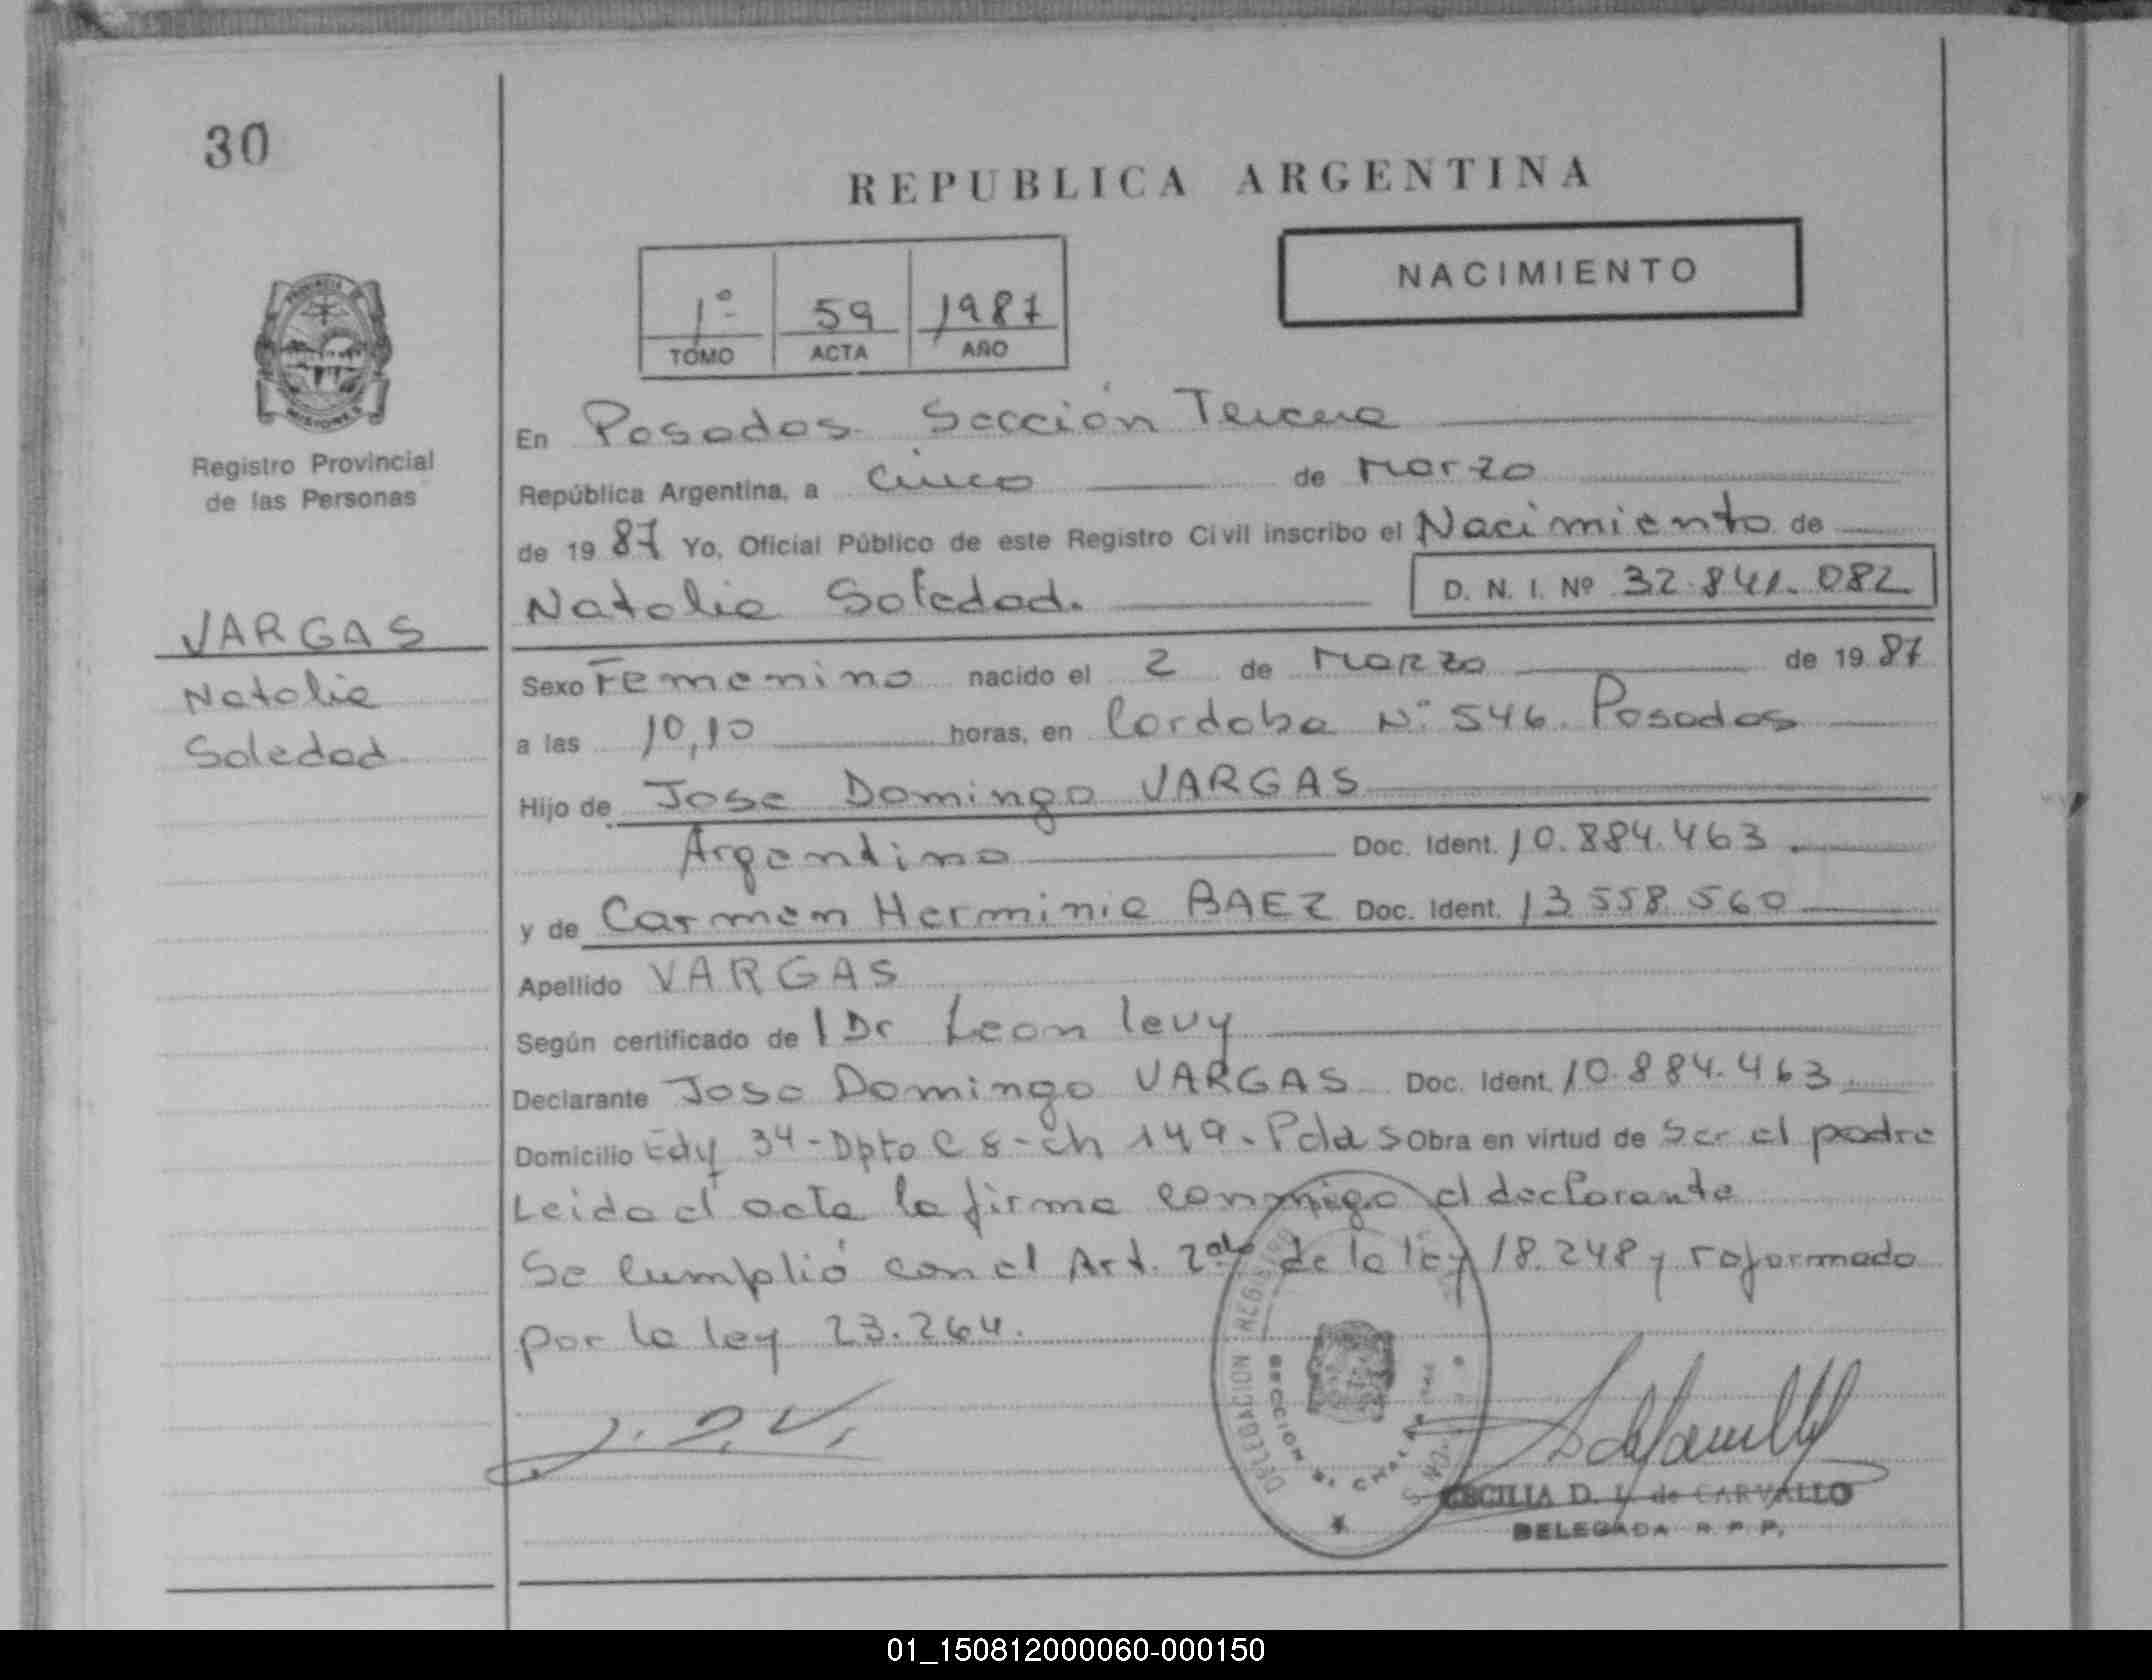 30
REPUBLICA ARGENTINA
NACIMIENTO
1º 59 1987
TOMO ACTA AÑO
Registro Provincial
de las Personas
VARGAS
Natalia
Soledad
En Posadas Sección Tercera
República Argentina, a Cinco de Marzo
de 1987 Yo, Oficial Público de este Registro Civil inscribo el Nacimiento de
Natalia Soledad. D. N. I. Nº 32.841.082
Sexo Femenino nacido el 2 de Marzo de 1987
a las 10,10 horas, en Cordoba Nº 546. Posadas
Hijo de Jose Domingo VARGAS
Argentino Doc. Ident. 10.884.463.
y de Carmen Herminia BAEZ Doc. Ident. 13.558.560
Apellido VARGAS
Según certificado del Dr Leon Levy
Declarante Jose Domingo VARGAS Doc. Ident. 10.884.463
Domicilio Edf 34-Dpto C 8-ch 149-Pdas Obra en virtud de ser el padre
Leida el acta la firma conmigo el declarante
Se cumplió con el Art. 2do de la ley 18.248 y reformado
por la ley 23.264.
J. D. V.
DELEGACION REGISTRO
SECCION
CECILIA D. L. de CARVALLO
DELEGADA R. P. P.
01_150812000060-000150